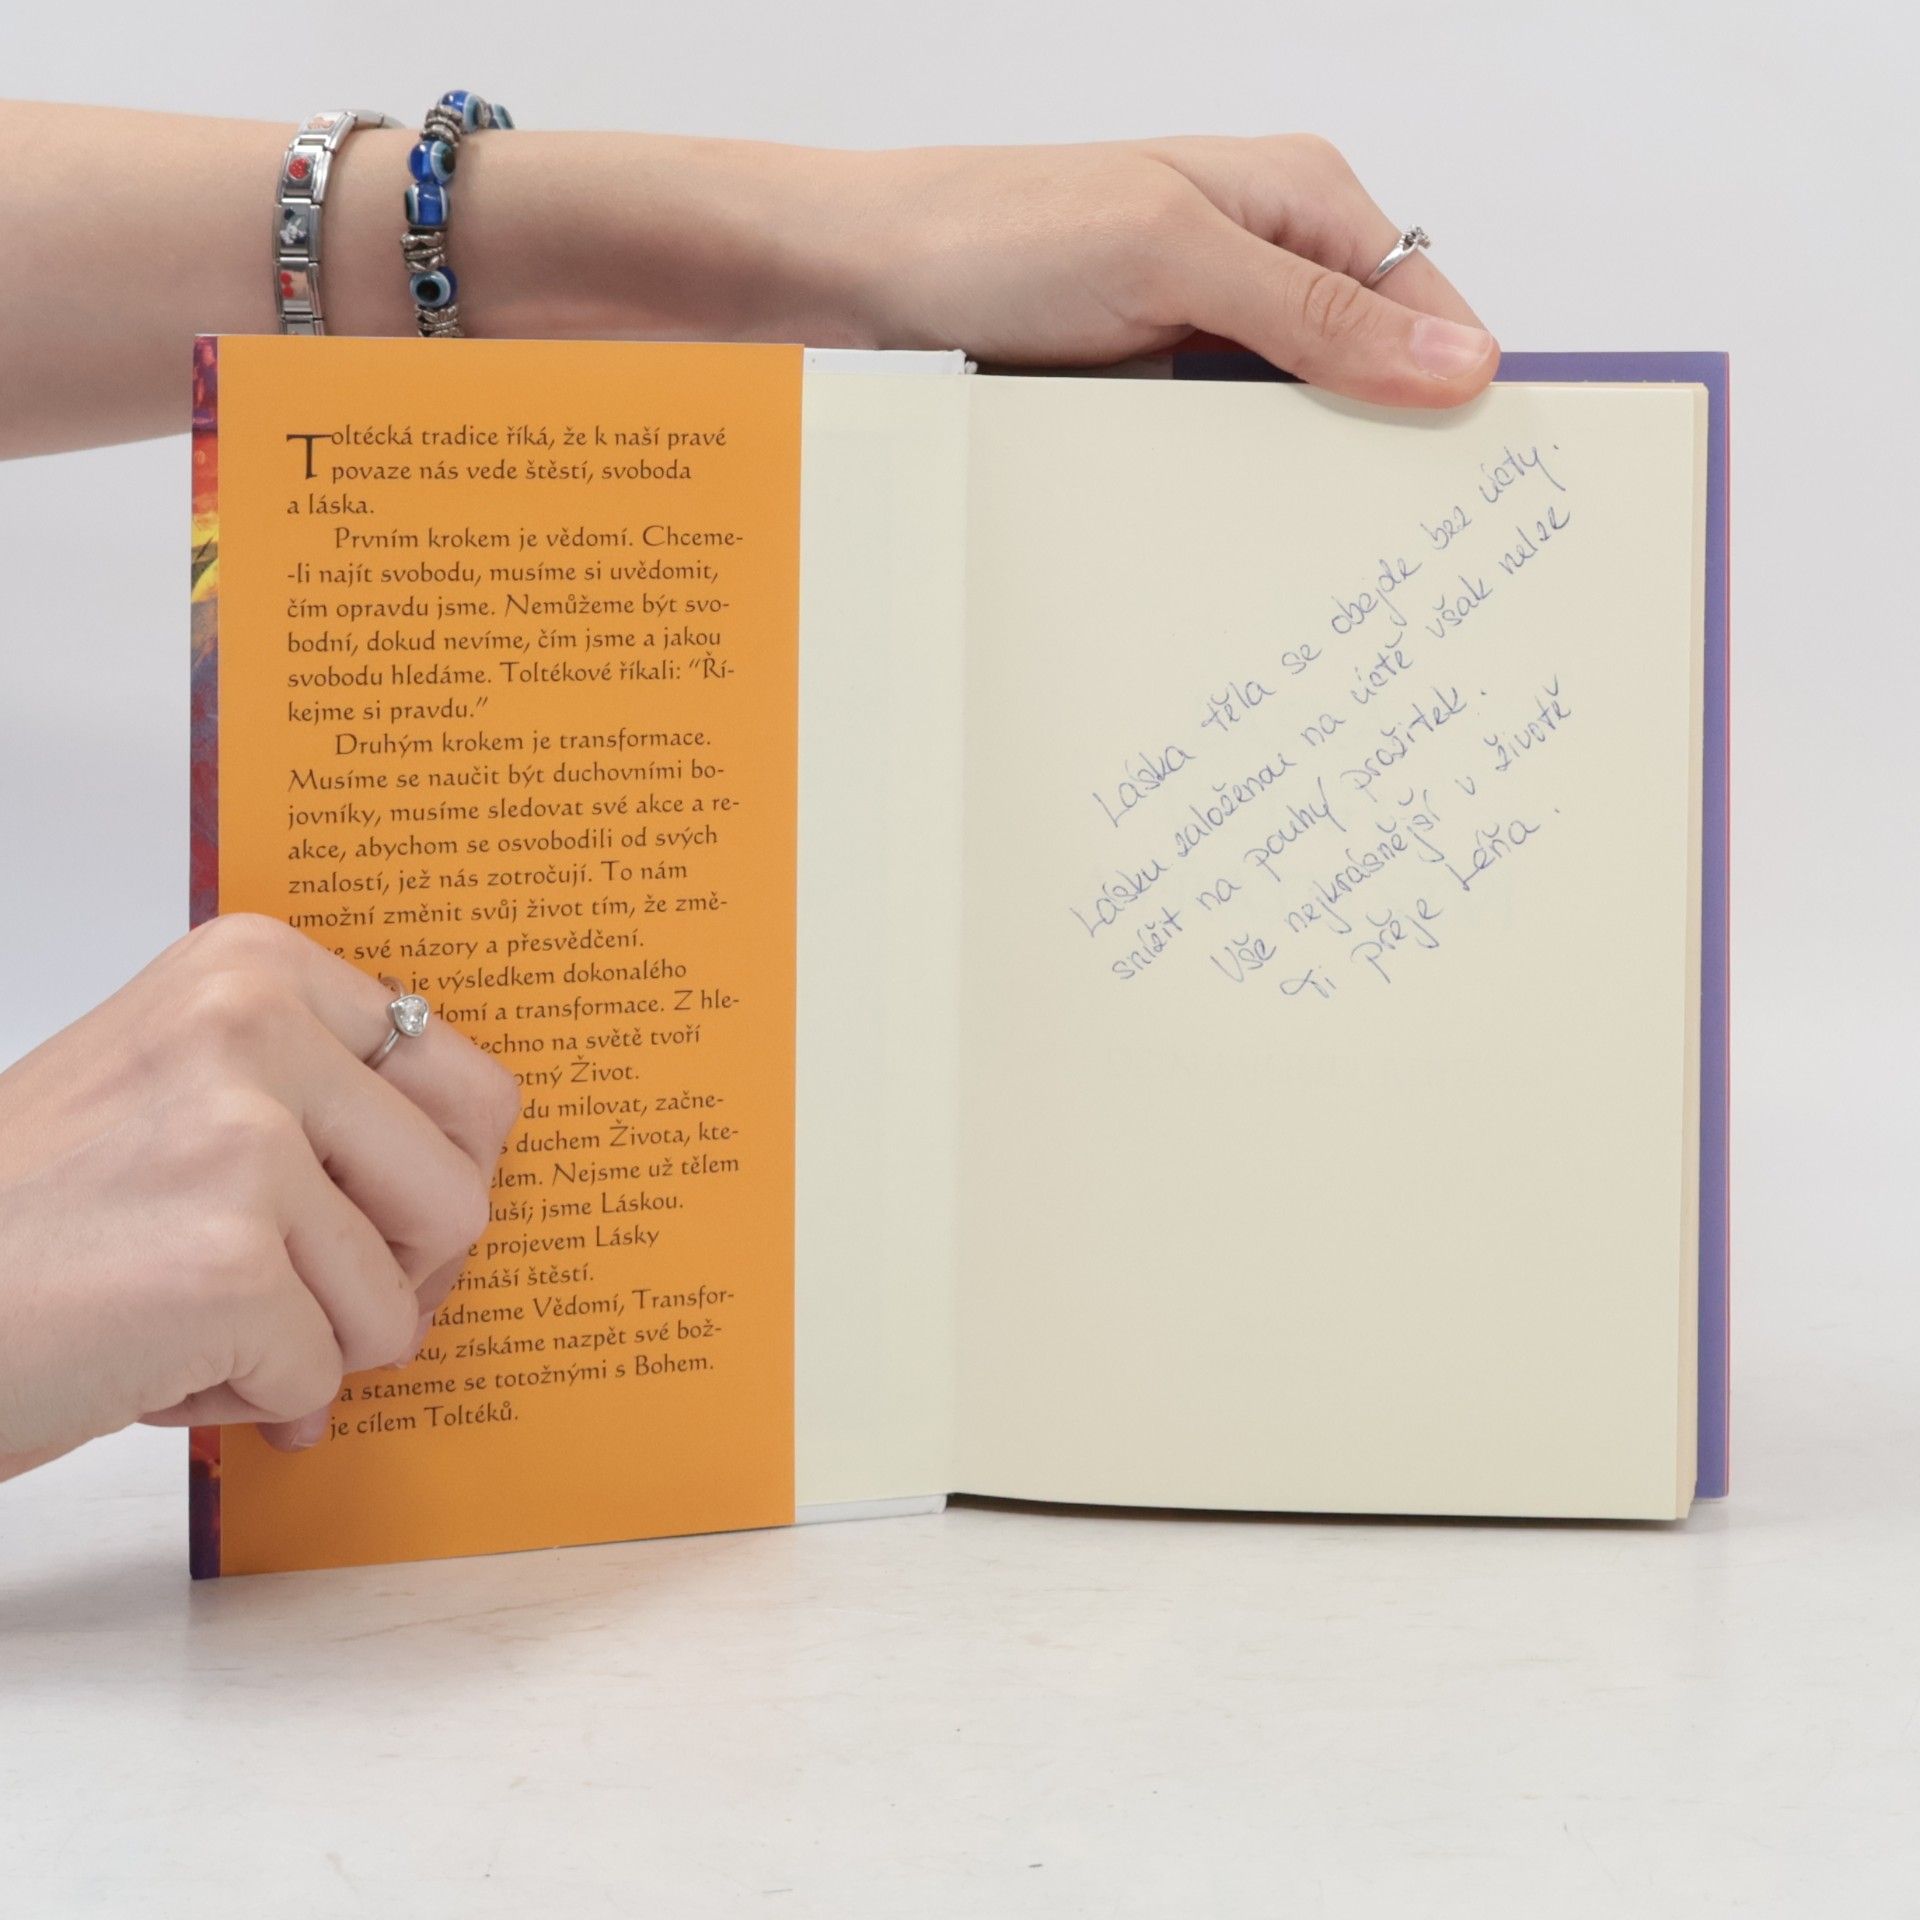 Toltécká tradice říká, že k naší pravé
povaze nás vede štěstí, svoboda
a láska.
Prvním krokem je vědomí. Chceme-
-li najít svobodu, musíme si uvědomit,
čím opravdu jsme. Nemůžeme být svo-
bodní, dokud nevíme, čím jsme a jakou
svobodu hledáme. Toltékové říkali: "Ří-
kejme si pravdu."
Druhým krokem je transformace.
Musíme se naučit být duchovními bo-
jovníky, musíme sledovat své akce a re-
akce, abychom se osvobodili od svých
znalostí, jež nás zotročují. To nám
umožní změnit svůj život tím, že změ-
své názory a přesvědčení.
je výsledkem dokonalého
a transformace. Z hle-
na světě tvoří
Život.
milovat, začne-
duchem Života, kte-
Nejsme už tělem
jsme Láskou.
projevem Lásky
štěstí.
Vědomí, Transfor-
získáme nazpět své bož-
a staneme se totožnými s Bohem.
je cílem Toltéků.
Láska těla se obejde bez úcty.
Lásku založenou na úctě však nelze
snížit na pouhý prožitek.
Vše nejkrásnější v životě
Ti přeje Léňa.